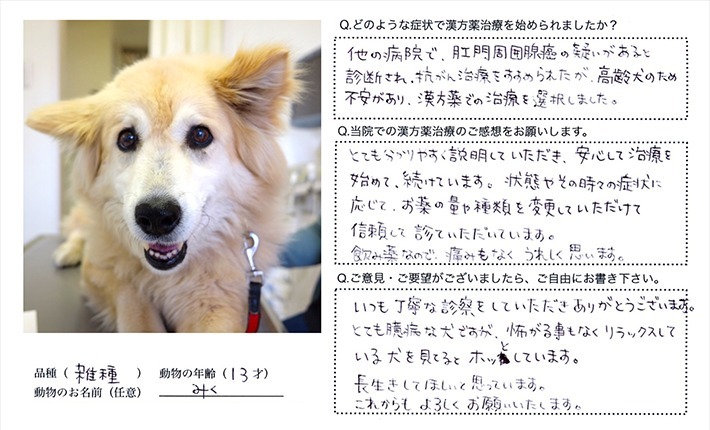 Q.どのような症状で漢方薬治療を始められましたか？
他の病院で、肛門周囲腺癌の疑いがあると
診断され、抗がん治療をすすめられたが、高齢犬のため
不安があり、漢方薬での治療を選択しました。
Q.当院での漢方薬治療のご感想をお願いします。
とても分かりやすく説明していただき、安心して治療を
始めて、続けています。状態やその時々の症状に
応じて、お薬の量や種類を変更していただけて
信頼して診ていただいています。
飲み薬なので、痛みもなくうれしく思います。
Q.ご意見・ご要望がございましたら、ご自由にお書き下さい。
いつも丁寧な診察をしていただきありがとうございます。
とても臆病な犬ですが、怖がる事もなくリラックスして
いる犬を見てるとホッとしています。
長生きしてほしいと思っています。
これからもよろしくお願いいたします。
品種（雑種）動物の年齢（13才）
動物のお名前（任意）みく